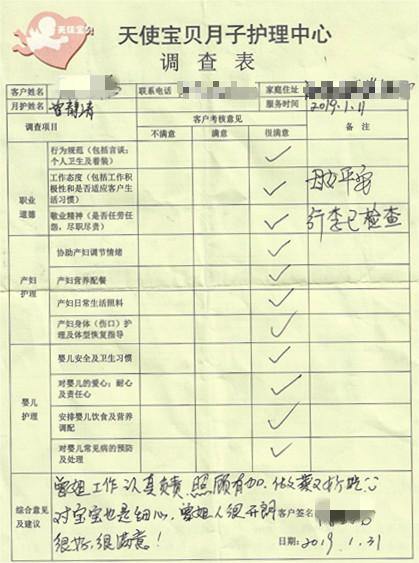 天使宝贝
天使宝贝月子护理中心
调查表
客户姓名 联系电话 家庭住址
月护姓名 服务时间 2019.1.11
调查项目 客户考核意见 备注
不满意 满意 很满意
职业道德 行为规范（包括言谈；个人卫生及着装） ✓
工作态度（包括工作积极性和是否适应客户生活习惯） ✓ 母女平安
敬业精神（是否任劳任怨，尽职尽责） ✓ 行李已检查
产妇护理 协助产妇调节情绪 ✓
产妇营养配餐 ✓
产妇日常生活照料 ✓
产妇身体（伤口）护理及体型恢复指导 ✓
婴儿护理 婴儿安全及卫生习惯 ✓
对婴儿的爱心；耐心及责任心 ✓
安排婴儿饮食及营养调配 ✓
对婴儿常见病的预防及处理 ✓
综合意见及建议 曾姐工作认真负责，照顾有加，做菜又好吃，
对宝宝也是细心，曾姐人很开朗
很好，很满意！
客户签名
日期：2019.1.31